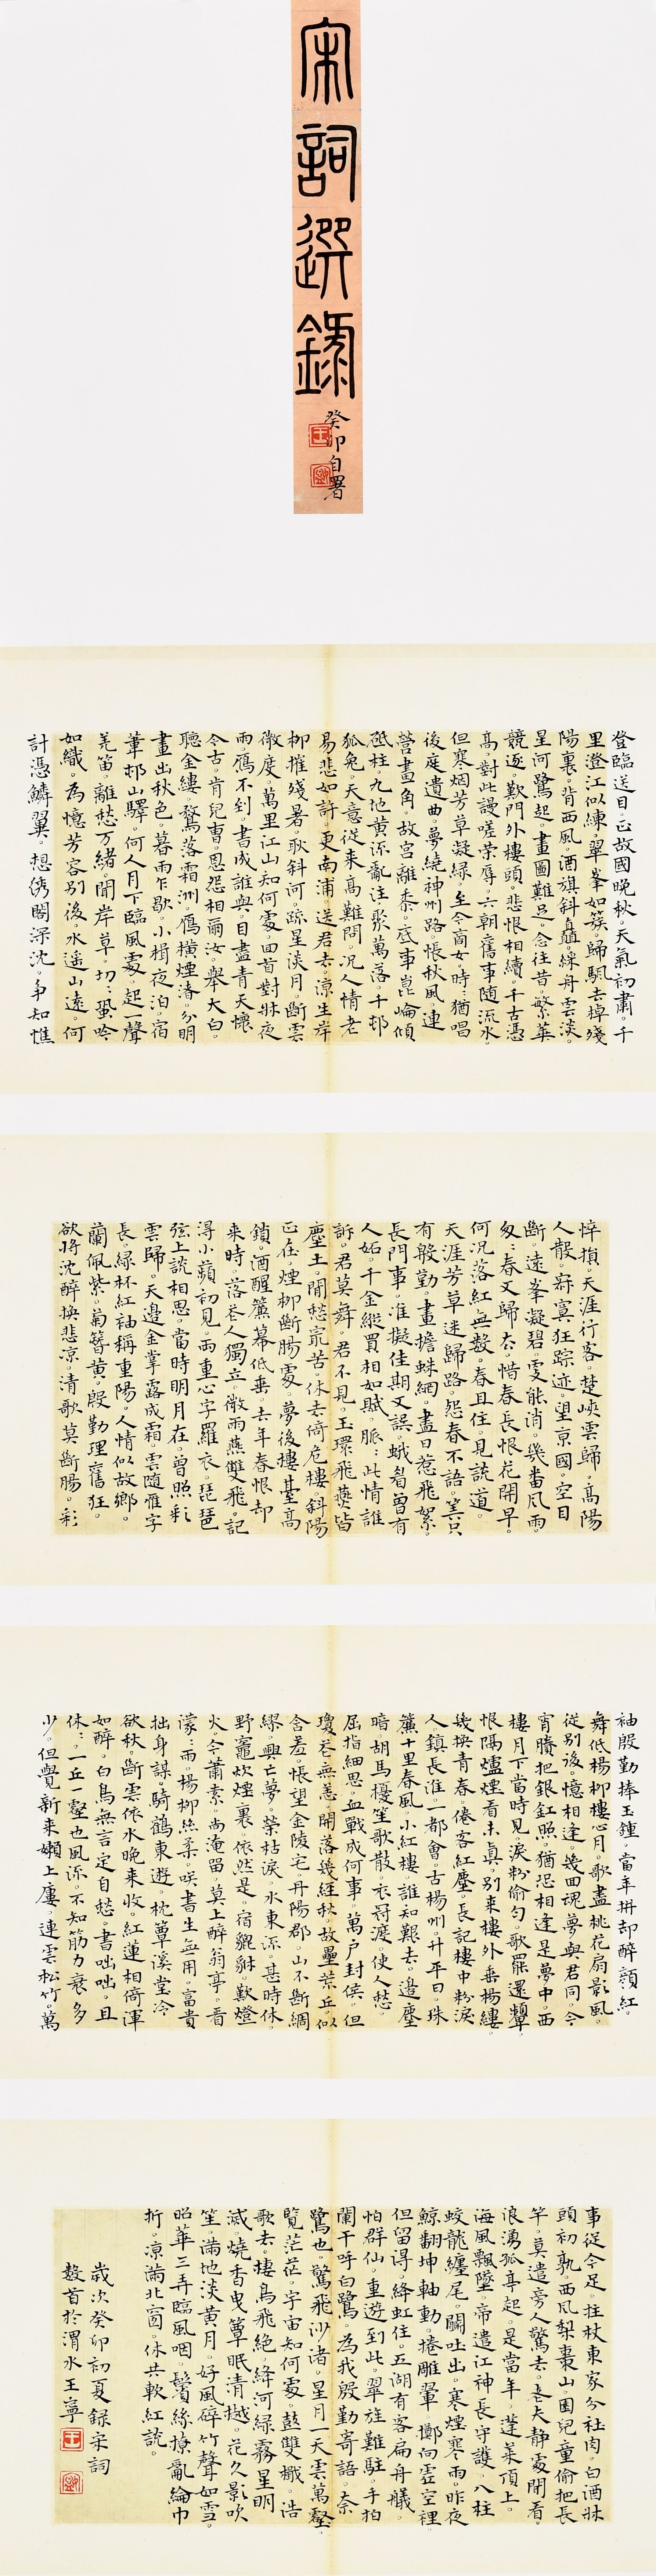 宋詞選錄
癸卯自署
登臨送目。正故國晚秋。天氣初肅。千
里澄江似練。翠峯如簇。歸颿去棹殘
陽裏。背西風酒旗斜矗。綵舟雲淡。
星河鷺起。畫圖難足。念往昔。繁華
競逐。歎門外樓頭。悲恨相續。千古憑
高。對此謾嗟榮辱。六朝舊事隨流水。
但寒烟芳草凝綠。至今商女。時時猶唱
後庭遺曲。夢繞神州路。悵秋風。連
營畫角。故宮離黍。底事崑崙傾
砥柱。九地黃流亂注。聚萬落。千邨
狐兔。天意從來高難問。況人情老
易悲如許。更南浦。送君去。涼生岸
柳摧殘暑。耿斜河。疏星淡月。斷雲
微度。萬里江山知何處。回首對牀夜
雨。鴈不到。書成誰與。目盡青天懷
今古。肯兒曹恩怨相爾汝。舉大白。
聽金縷。鶩落霜洲。鴈橫煙渚。分明
畫出秋色。暮雨乍歇。小楫夜泊。宿
葦邨山驛。何人月下臨風處。起一聲
羌笛。離愁万緒。聞岸草。切切蛩吟
如織。為憶芳容別後。水遙山遠。何
計憑鱗翼。想繡閣深沈。爭知憔
悴損。天涯行客。楚峽雲歸。高陽
人散。寂寞狂踪迹。望京國。空目
斷。遠峯凝碧。更能消。幾番風雨
匆匆春又歸去。惜春長恨花開早。
何況落紅無數。春且住。見說道。
天涯芳草迷歸路。怨春不語。算只
有殷勤。畫檐蛛網。盡日惹飛絮。
長門事。准擬佳期又誤。蛾眉曾有
人妬。千金縱買相如賦。脈脈此情誰
訴。君莫舞。君不見。玉環飛燕皆
塵土。閒愁最苦。休去倚危樓。斜陽
正在。煙柳斷腸處。夢後樓臺高
鎖。酒醒簾幕低垂。去年春恨却
來時。落花人獨立。微雨燕雙飛。記
得小蘋初見。兩重心字羅衣。琵琶
弦上說相思。當時明月在。曾照彩
雲歸。天邊金掌露成霜。雲隨雁字
長。綠杯紅袖稱重陽。人情似故鄉。
蘭佩紫。菊簪黃。殷勤理舊狂。
欲將沈醉換悲涼。清歌莫斷腸。彩
袖殷勤捧玉鍾。當年拚却醉顏紅。
舞低楊柳樓心月。歌盡桃花扇影風。
從別後。憶相逢。幾回魂夢與君同。今
宵賸把銀釭照。猶恐相逢是夢中。西
樓月下當時見。淚粉偷勻。歌罷還顰。
恨隔爐煙看未真。別來樓外垂楊縷。
幾換青春。倦客紅塵。長記樓中粉淚
人。鎮長淮。一都會。古楊州。升平日。珠
簾十里春風。小紅樓。誰知艱去。邊塵
暗。胡馬擾。笙歌散。衣冠渡。使人愁。
屈指細思。血戰成何事。萬户封侯。但
瓊花無恙。開落幾經秋。故壘荒丘。似
含羞。悵望金陵宅。丹陽郡。山不斷綢
繆。興亡夢。榮枯淚。水東流。甚時休。
野竈炊煙裏。依然是。宿貔貅。歎燈
火。今蕭索。尚淹留。莫上醉翁亭。看
濛濛雨。楊柳絲柔。笑書生無用。富貴
拙身謀。騎鶴東遊。枕簟溪堂冷
欲秋。斷雲依水晚來收。紅蓮相倚渾
如醉。白鳥無言定自愁。書咄咄。且
休休。一丘一壑也風流。不知筋力衰多
少。但覺新來嬾上樓。連雲松竹。萬
事從今足。拄杖東家分社肉。白酒牀
頭初熟。西風梨棗山園。兒童偷把長
竿。莫遣旁人驚去。老夫靜處閒看。
浪湧孤亭起。是當年。蓬萊頂上。
海風飄墜。帝遣江神長守護。八柱
蛟龍纏尾。鬭吐出。寒煙寒雨。昨夜
鯨翻坤軸動。捲雕翬。擲向虛空裡
但留得。絳虹住。五湖有客扁舟艤。
怕群仙。重遊到此。翠旌難駐。手拍
闌干呼白鷺。為我殷勤寄語。奈
鷺也。驚飛沙渚。星月一天雲萬壑
覽茫茫。宇宙知何處。鼓雙楫。浩
歌去。棲鳥飛絕。絳河綠霧。星明
滅。燒香曳簟眠清樾。花久影吹
笙。滿地淡黃月。好風碎竹聲如雪。
昭華三弄臨風咽。鬢絲撩亂綸巾
折。涼滿北窗。休共軟紅說。
歲次癸卯初夏錄宋詞
數首於渭水王寧